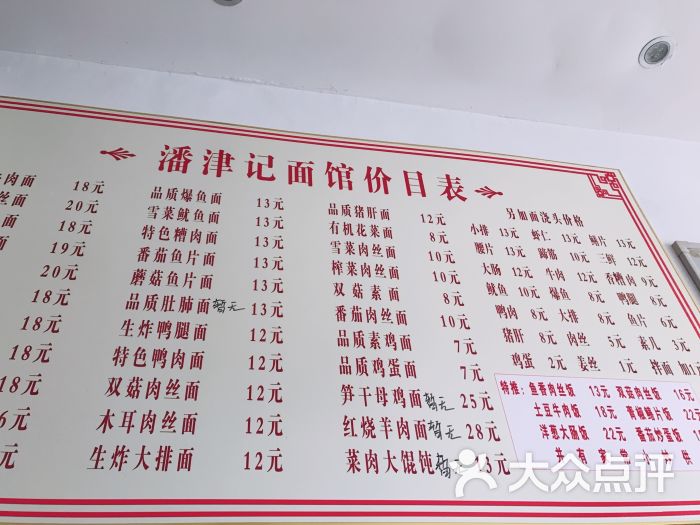 潘津记面馆价目表
肉面 18元
丝面 20元
面 18元
面 19元
20元
18元
18元
18元
18元
6元
元
品质爆鱼面 13元
雪菜鱿鱼面 13元
特色糟肉面 13元
番茄鱼片面 13元
蘑菇鱼片面 13元
品质肚肺面 暂无 13元
生炸鸭腿面 12元
特色鸭肉面 12元
双菇肉丝面 12元
木耳肉丝面 12元
生炸大排面 12元
品质猪肝面 12元
有机花菜面 8元
雪菜肉丝面 10元
榨菜肉丝面 10元
双菇素面 8元
番茄肉丝面 10元
品质素鸡面 7元
品质鸡蛋面 7元
笋干母鸡面 暂无 25元
红烧羊肉面 暂无 28元
菜肉大馄饨 3元
另加面浇头价格
小排 13元 虾仁 13元 鳝片 13元
腰片 13元 蹄筋 12元 三鲜 12元
大肠 12元 牛肉 12元 香糟肉 9元
鱿鱼 10元 爆鱼 8元 鸭腿 8元
鸭肉 8元 大排 8元 鱼片 6元
猪肝 8元 肉丝 5元 素儿 3元
鸡蛋 2元 姜丝 1元 拌面 加1
特推：鱼香肉丝饭 13元 双菇肉丝饭 16元
土豆牛肉饭 18元 青椒鳝片饭 22
洋葱大肠饭 22元 番茄炒蛋饭 1
并有 供
大众点评